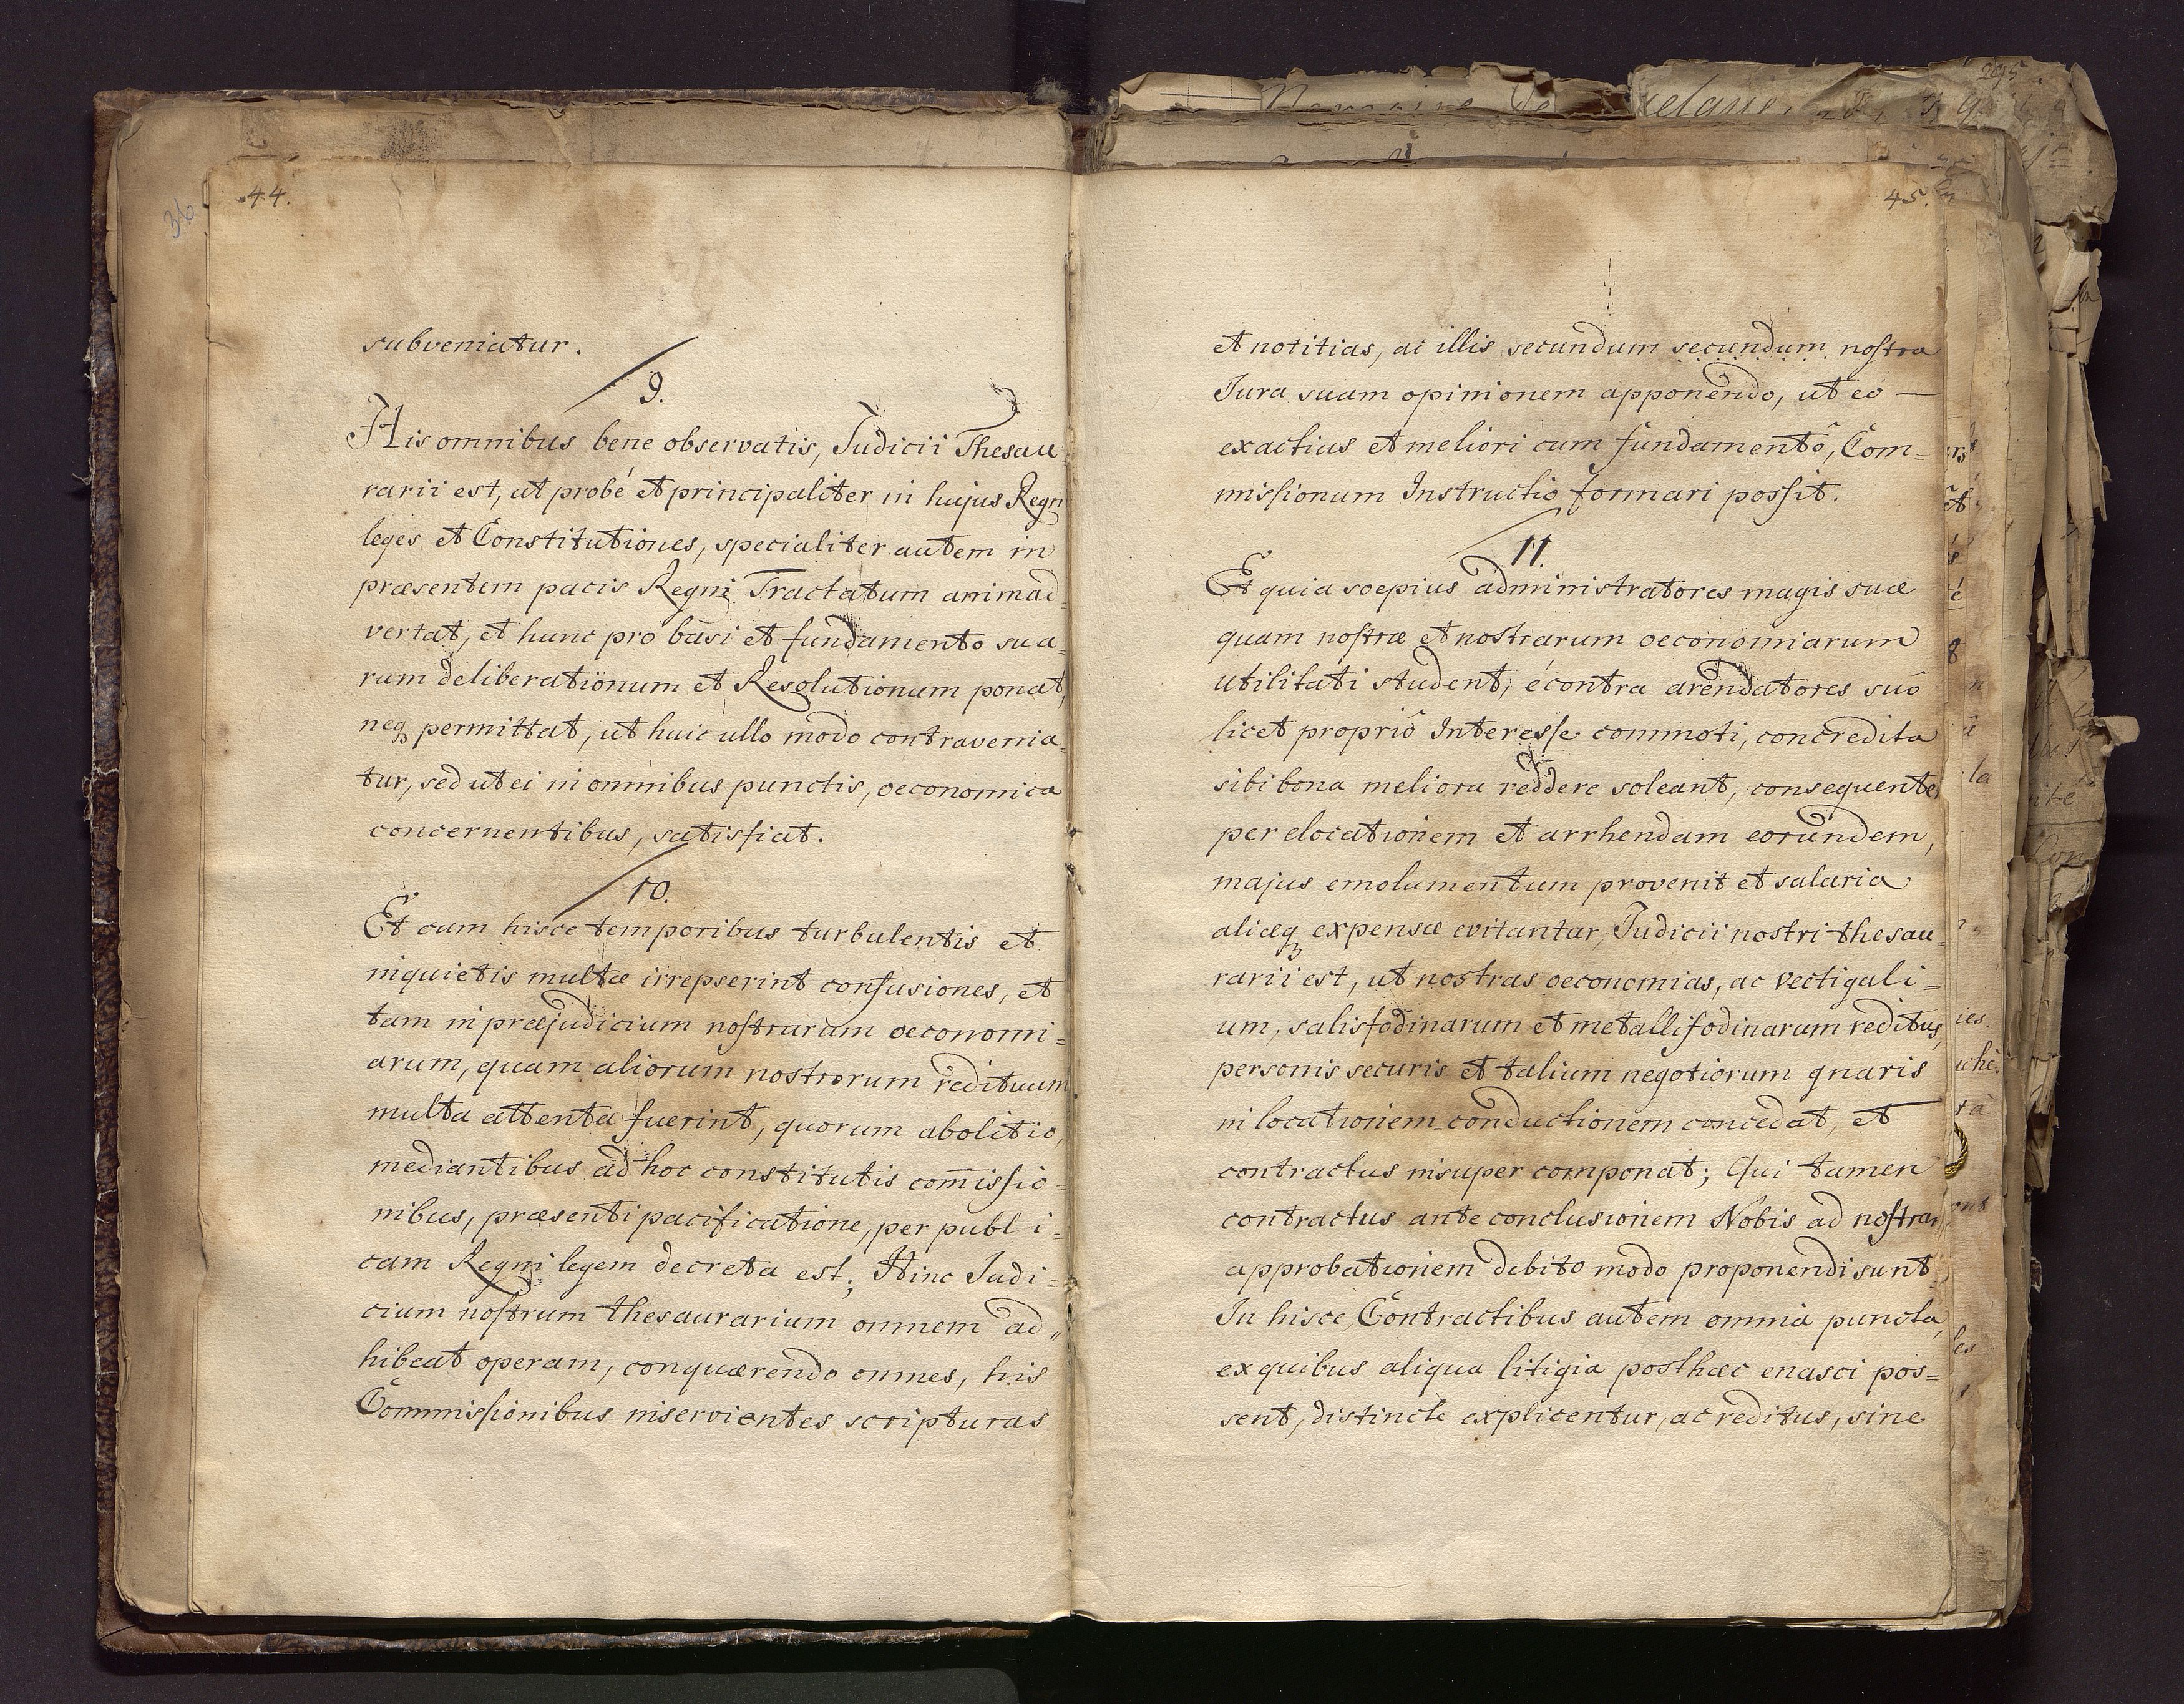 36.
44.
subveniatur.
9.
His omnibus bene observatis, Judicii Thesau=
rarii est, ut probé et principaliter in hujus Regni
leges et Constitutiones, specialiter autem in
præsentem pacis Regni Tractatum animad=
vertat, et hunc pro basi et fundamento sua=
rum deliberationum et Resolutionum ponat,
neq permittat, ut huic ullo modo contravenia=
tur, sed ut ei in omnibus punctis, oeconomica
concernentibus, satisfiat.
10.
Et cum hisce temporibus turbulentis et
inquietis multæ irrepserint confusiones, et
tam in præjudicium nostrarum oeconomi=
arum, quam aliorum nostrorum redituum
multa attenta fuerint, quorum abolitio,
mediantibus ad hoc constitutis com̄issio=
nibus, præsenti pacificatione, per publi=
cam Regni legem decreta est; Hinc Judi=
cium nostrum thesaurarium omnem ad„
hibeat operam, conquærendo omnes, his
Commissionibus inservientes scripturas
45.
et notitias, ac illis secundum secundum nostra
Jura suam opinionem apponendo, ut eo —
exactius et meliori cum fundamentô, Com=
missionum Instructio formari possit.
11.
Et quia soepius administratores magis suæ
quam nostræ et nostrarum oeconomiarum
utilitati student, écontra arendatores suô
licet propriô Interesse commoti, concredita
sibi bona meliora reddere soleant, consequenter
per elocationem et arrhendam eorundem,
majus emolumentum provenit et salaria
aliæq expensæ evitantur, Judicii nostri thesau=
rarii est, ut nostras oeconomias, ac vectigali=
um, salisfodinarum et metallifodinarum reditus,
personis securis et talium negotiorum gnaris
in locationem conductionem concedat, et
contractus insuper componat; Qui tamen
contractus ante conclusionem Nobis ad nostram
approbationem debito modo proponendi sunt
In hisce Contractibus autem omnia puncta,
ex quibus aliqua litigia posthæc enasci pos=
sent, distincte explicentur, ac reditus, sine